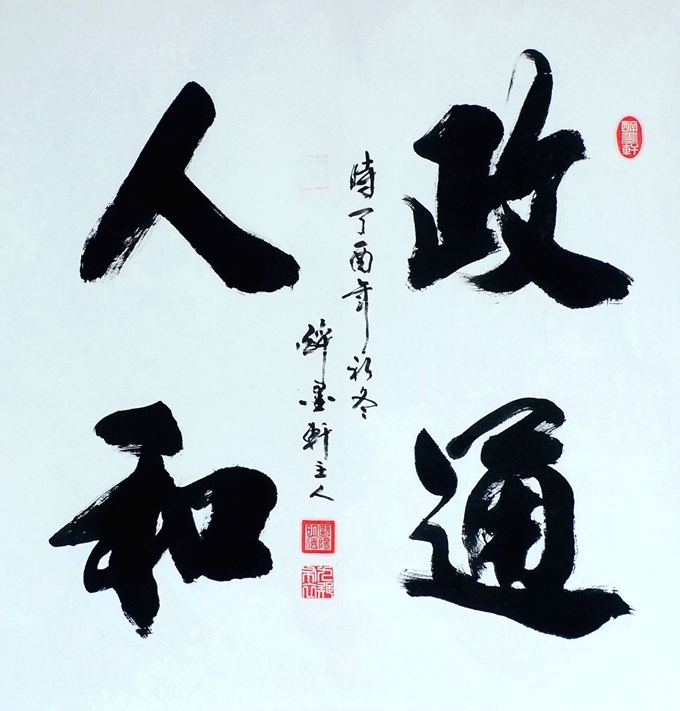 醉墨軒
政通
人和
時丁酉年初冬
醉墨軒主人